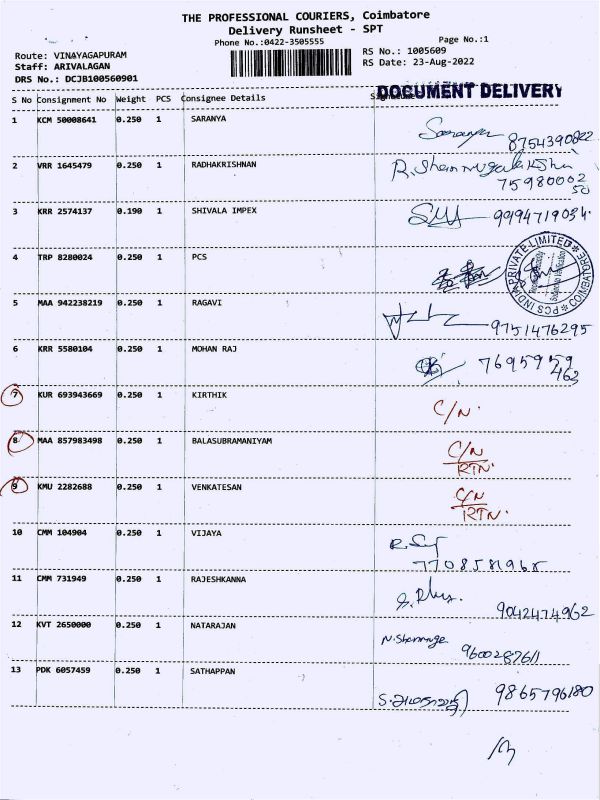 THE PROFESSIONAL COURIERS, Coimbatore
Delivery Runsheet - SPT
Phone No.:0422-3505555
Page No.:1
Route: VINAYAGAPURAM
RS No.: 1005609
Staff: ARIVALAGAN
RS Date: 23-Aug-2022
DRS No.: DCJB100560901
DOCUMENT DELIVERY
S No Consignment No Weight PCS Consignee Details
1 KCM 50008641 0.250 1 SARANYA Saranya 8754390822
2 VRR 1645479 0.250 1 RADHAKRISHNAN
75980002
50
3 KRR 2574137 0.190 1 SHIVALA IMPEX 9994719034.
4 TRP 8280024 0.250 1 PCS
PCS INDIA PRIVATE LIMITED COIMBATORE
5 MAA 942238219 0.250 1 RAGAVI 9751476295
6 KRR 5580104 0.250 1 MOHAN RAJ 7695959
463
7 KUR 693943669 0.250 1 KIRTHIK C/N.
8 MAA 857983498 0.250 1 BALASUBRAMANIYAM C/N
RTN
9 KMU 2282688 0.250 1 VENKATESAN C/N
RTN
10 CMM 104904 0.250 1 VIJAYA
7708581968
11 CMM 731949 0.250 1 RAJESHKANNA
9042474962
12 KVT 2650000 0.250 1 NATARAJAN
9600287611
13 PDK 6057459 0.250 1 SATHAPPAN 9865796180